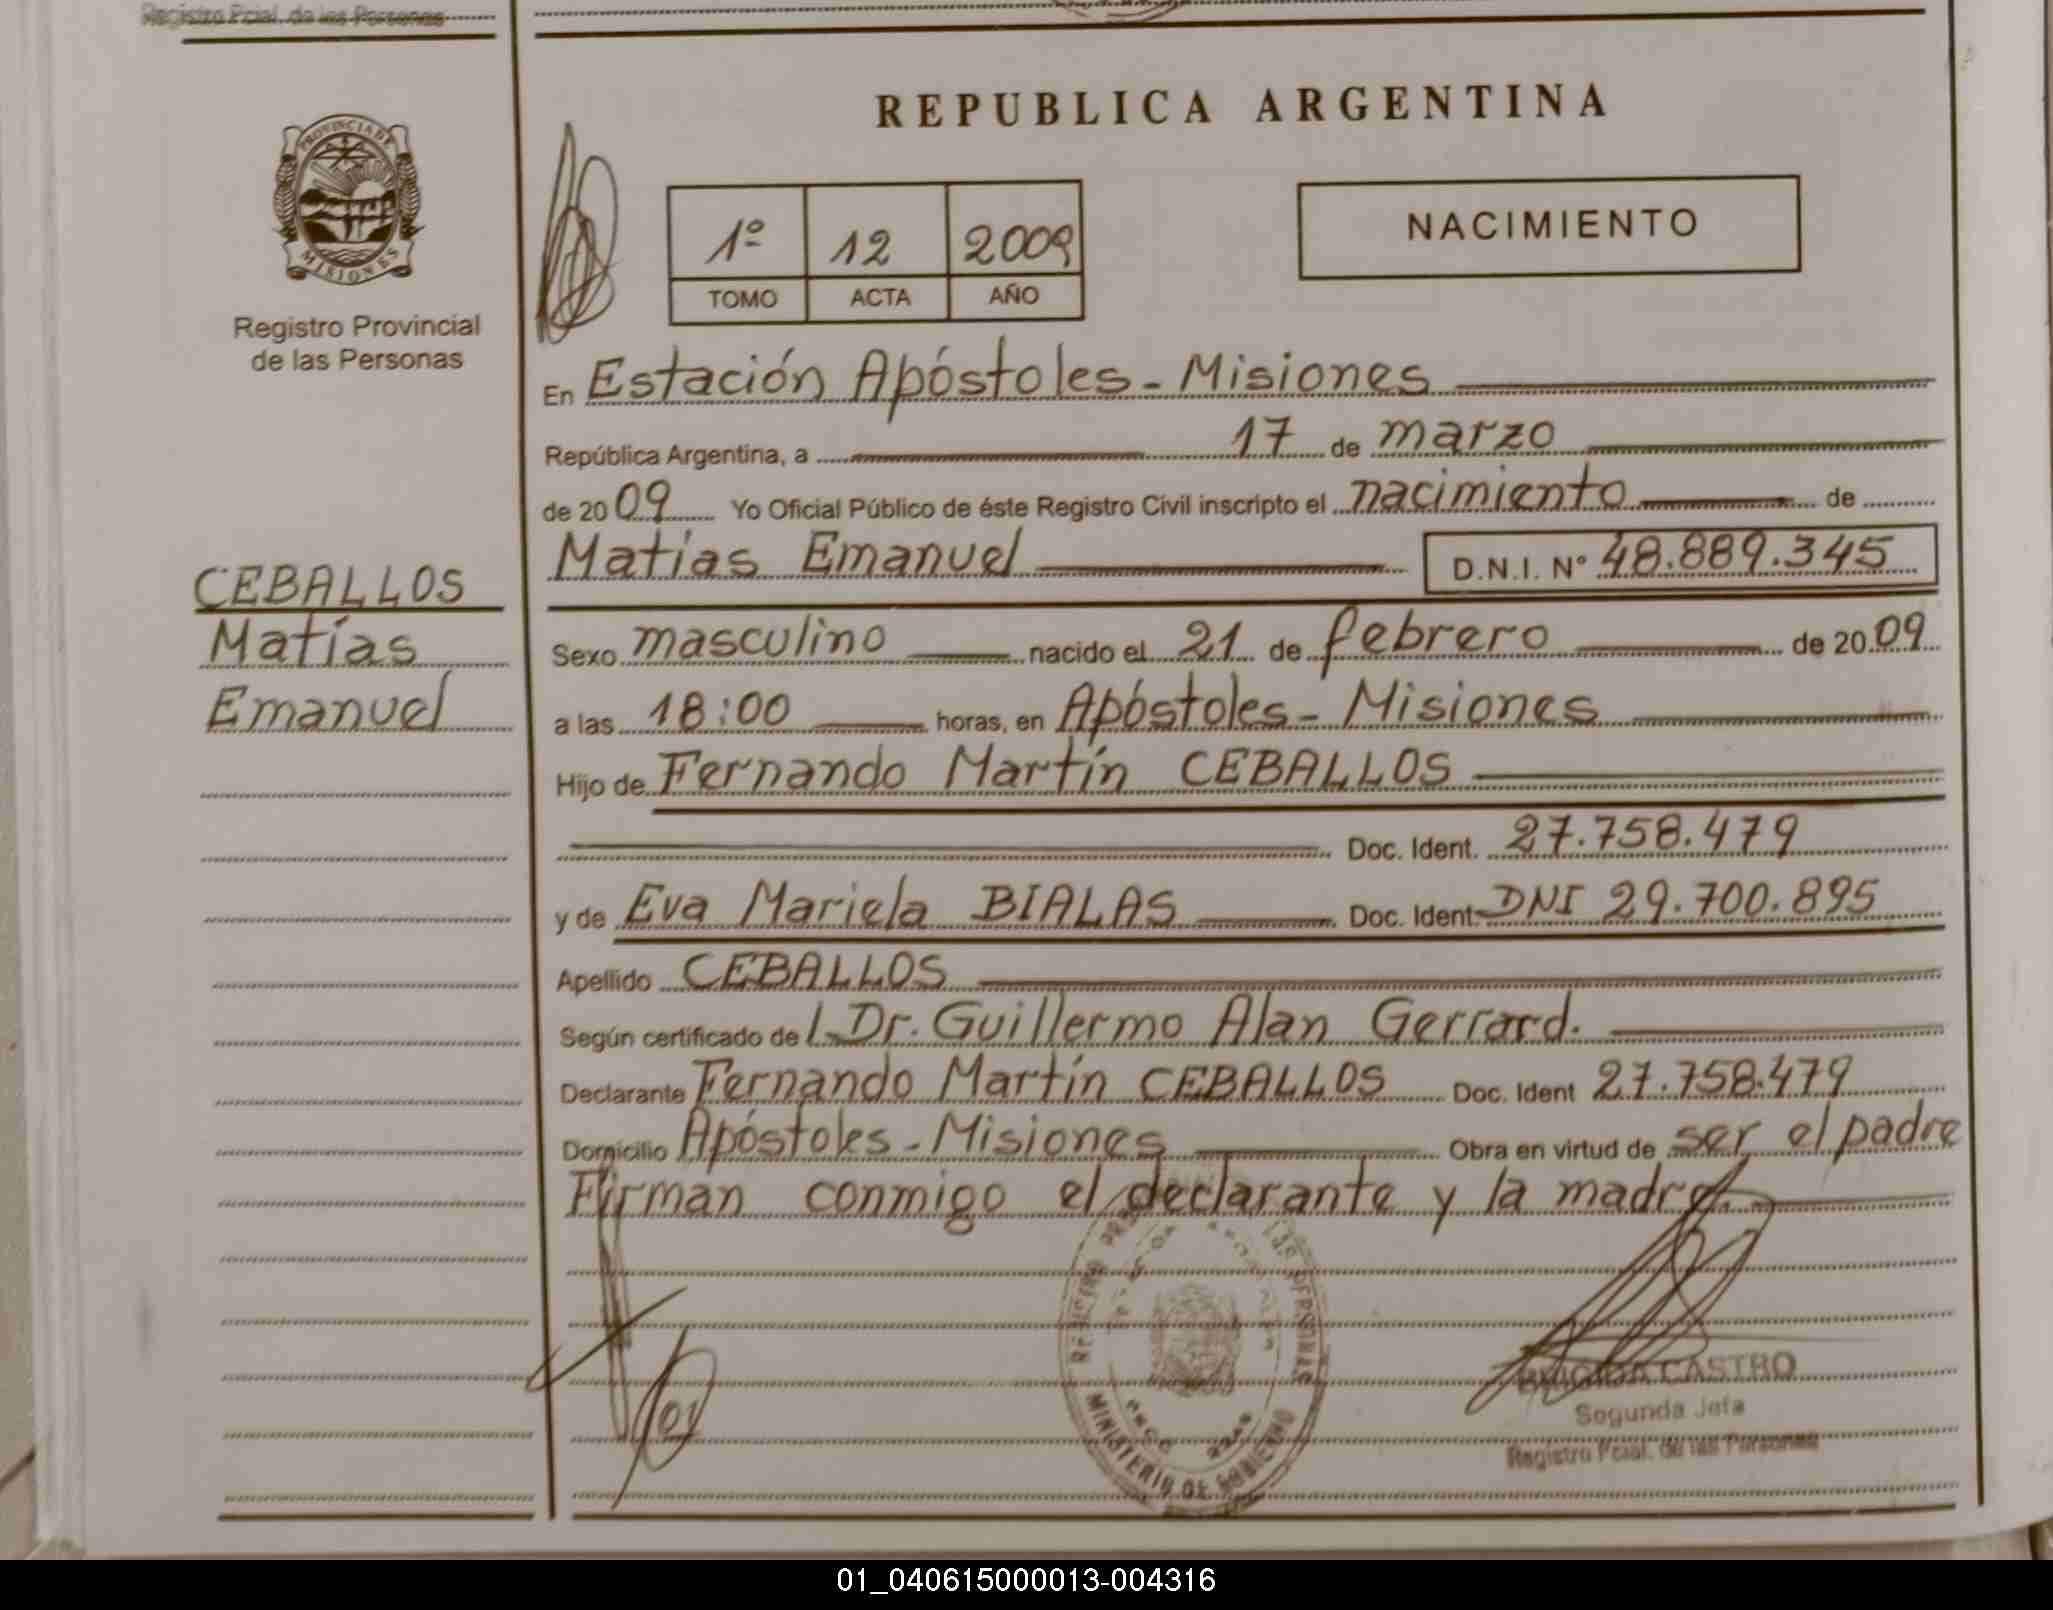 Registro Pcial. de las Personas
REPUBLICA ARGENTINA
PROVINCIA DE
MISIONES
Registro Provincial
de las Personas
1º 12 2009
TOMO ACTA AÑO
NACIMIENTO
En Estación Apóstoles - Misiones
República Argentina, a 17 de marzo
de 2009 Yo Oficial Público de éste Registro Civil inscripto el nacimiento de
Matías Emanuel D.N.I. Nº 48.889.345
CEBALLOS
Matías
Emanuel
Sexo masculino nacido el 21 de febrero de 2009
a las 18:00 horas, en Apóstoles - Misiones
Hijo de Fernando Martín CEBALLOS
Doc. Ident. 27.758.479
y de Eva Mariela BIALAS Doc. Ident. DNI 29.700.895
Apellido CEBALLOS
Según certificado de l Dr. Guillermo Alan Gerrard.
Declarante Fernando Martín CEBALLOS Doc. Ident 27.758.479
Domicilio Apóstoles - Misiones Obra en virtud de ser el padre
Firman conmigo el declarante y la madre.
REGISTRO LAS PERSONAS
MINISTERIO DE GOBIERNO
CASTRO
Segunda Jefa
Registro Pcial. de las Personas
01_040615000013-004316